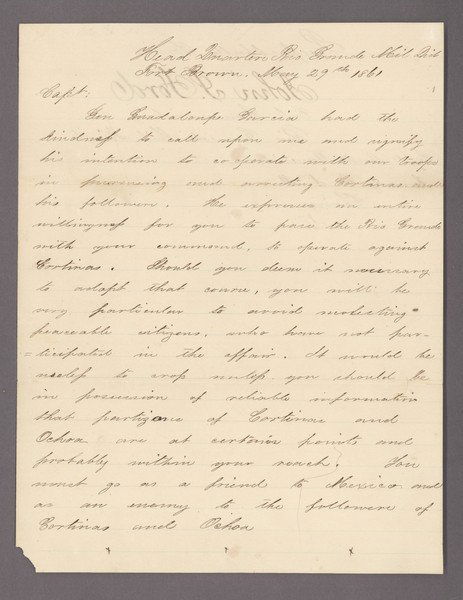 Head Quarters Rio Grande Mil Dis
Fort Brown, May 29th 1861
Capt:
Gen Guadaloupe Garcia had the
kindness to call upon me and signify
his intention to cooperate with our troops
in pursueing and arresting Cortinas and
his followers. He expresses an entire
willingness for you to pass the Rio Grande
with your command, to operate against
Cortinas. Should you deem it necessary
to adopt that course, you will be
very particular to avoid molesting
peaceable citizens, who have not par-
=ticipated in the affair. It would be
useless to cross unless you should be
in possession of reliable information
that partizans of Cortinas and
Ochoa are at certain points and
probably within your reach. You
must go as a friend to Mexico and
as an enemy to the followers of
Cortinas and Ochoa
x x x